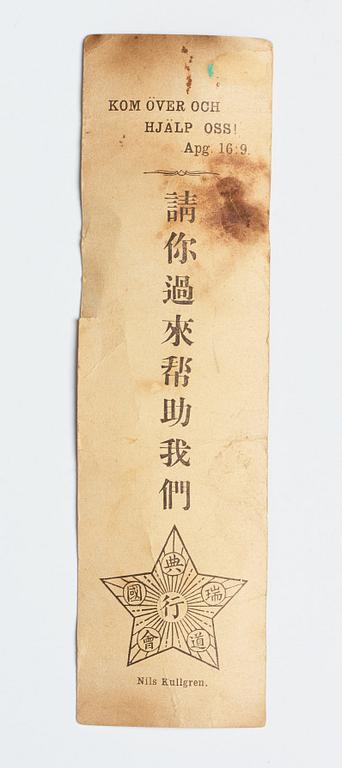 KOM ÖVER OCH
HJÄLP OSS!
Apg. 16:9.
請你過來帮助我們
典
國
瑞
行
會
道
Nils Kullgren.